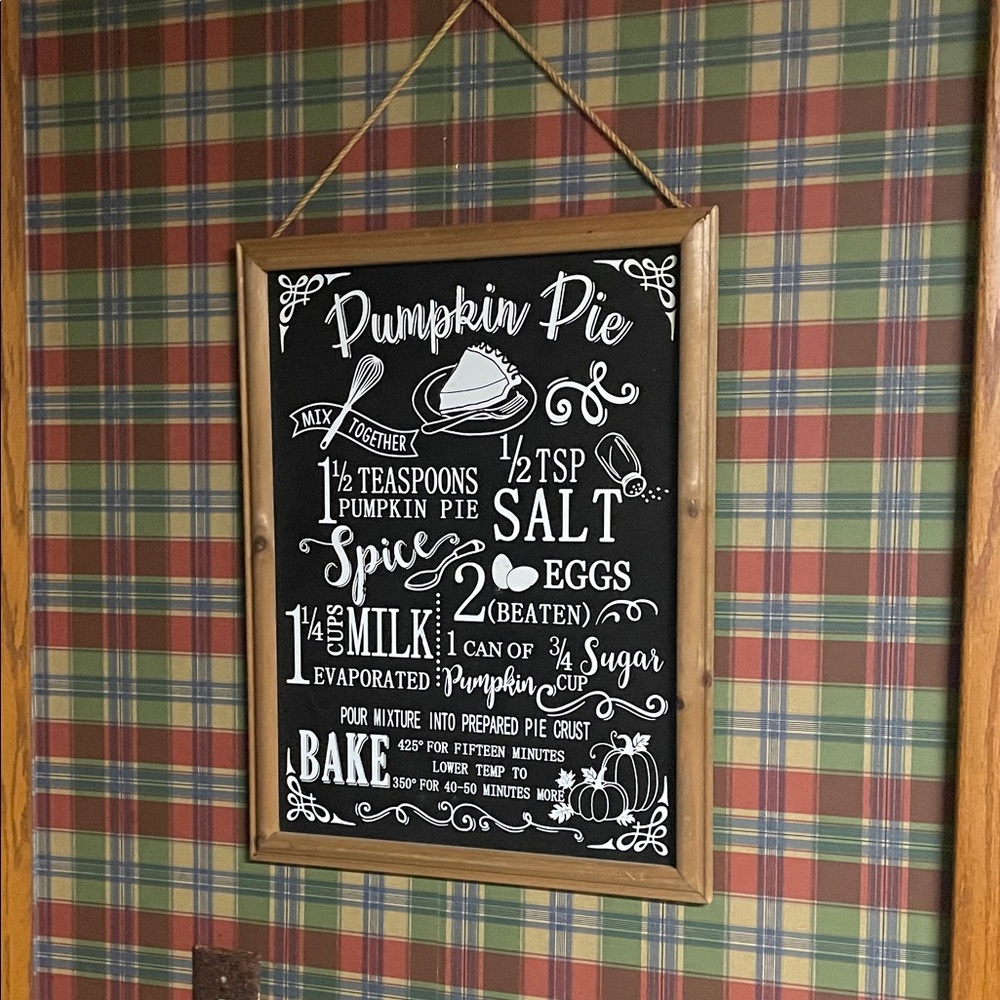 Pumpkin Pie
MIX TOGETHER
1 1/2 TEASPOONS
PUMPKIN PIE
Spice
1/2 TSP
SALT
2 EGGS
(BEATEN)
1 1/4 CUPS MILK
EVAPORATED
1 CAN OF
Pumpkin
3/4 Sugar
CUP
POUR MIXTURE INTO PREPARED PIE CRUST
BAKE
425° FOR FIFTEEN MINUTES
LOWER TEMP TO
350° FOR 40-50 MINUTES MORE